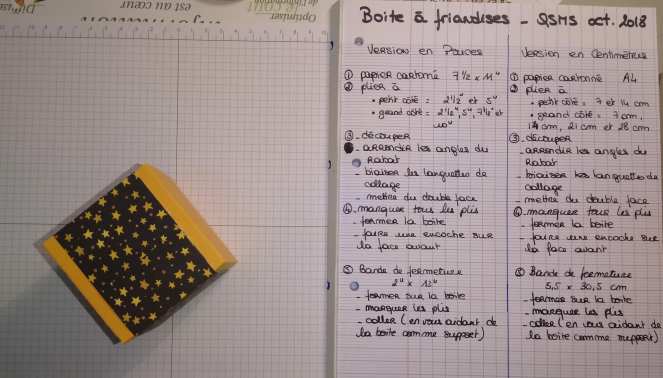 Boite à friandises - QSMS oct. 2018
Version en Pouces
① papier cartonné 7 1/2 x 11"
② plier à
• petit côté : 2 1/2" et 5"
• grand côté : 2 1/2", 5", 7 1/2" et
10"
③ - découper
- arrondir les angles du
Rabat
- biaiser les languettes de
collage
- mettre du double face
④ - marquer tous les plis
- former la boite
- faire une encoche sur
la face avant
⑤ Bande de fermeture
2" x 12"
- former sur la boite
- marquer les plis
- coller (en vous aidant de
la boite comme support)
Version en Centimètres
① papier cartonné A4
② plier à
• petit côté : 7 et 14 cm
• grand côté : 7 cm,
14 cm, 21 cm et 28 cm
③ - découper
- arrondir les angles du
Rabat
- biaiser les languettes de
collage
- mettre du double face
④ - marquer tous les plis
- former la boite
- faire une encoche sur
la face avant
⑤ Bande de fermeture
5,5 x 30,5 cm
- former sur la boite
- marquer les plis
- coller (en vous aidant de
la boite comme support)
est au cœur
Optimiser